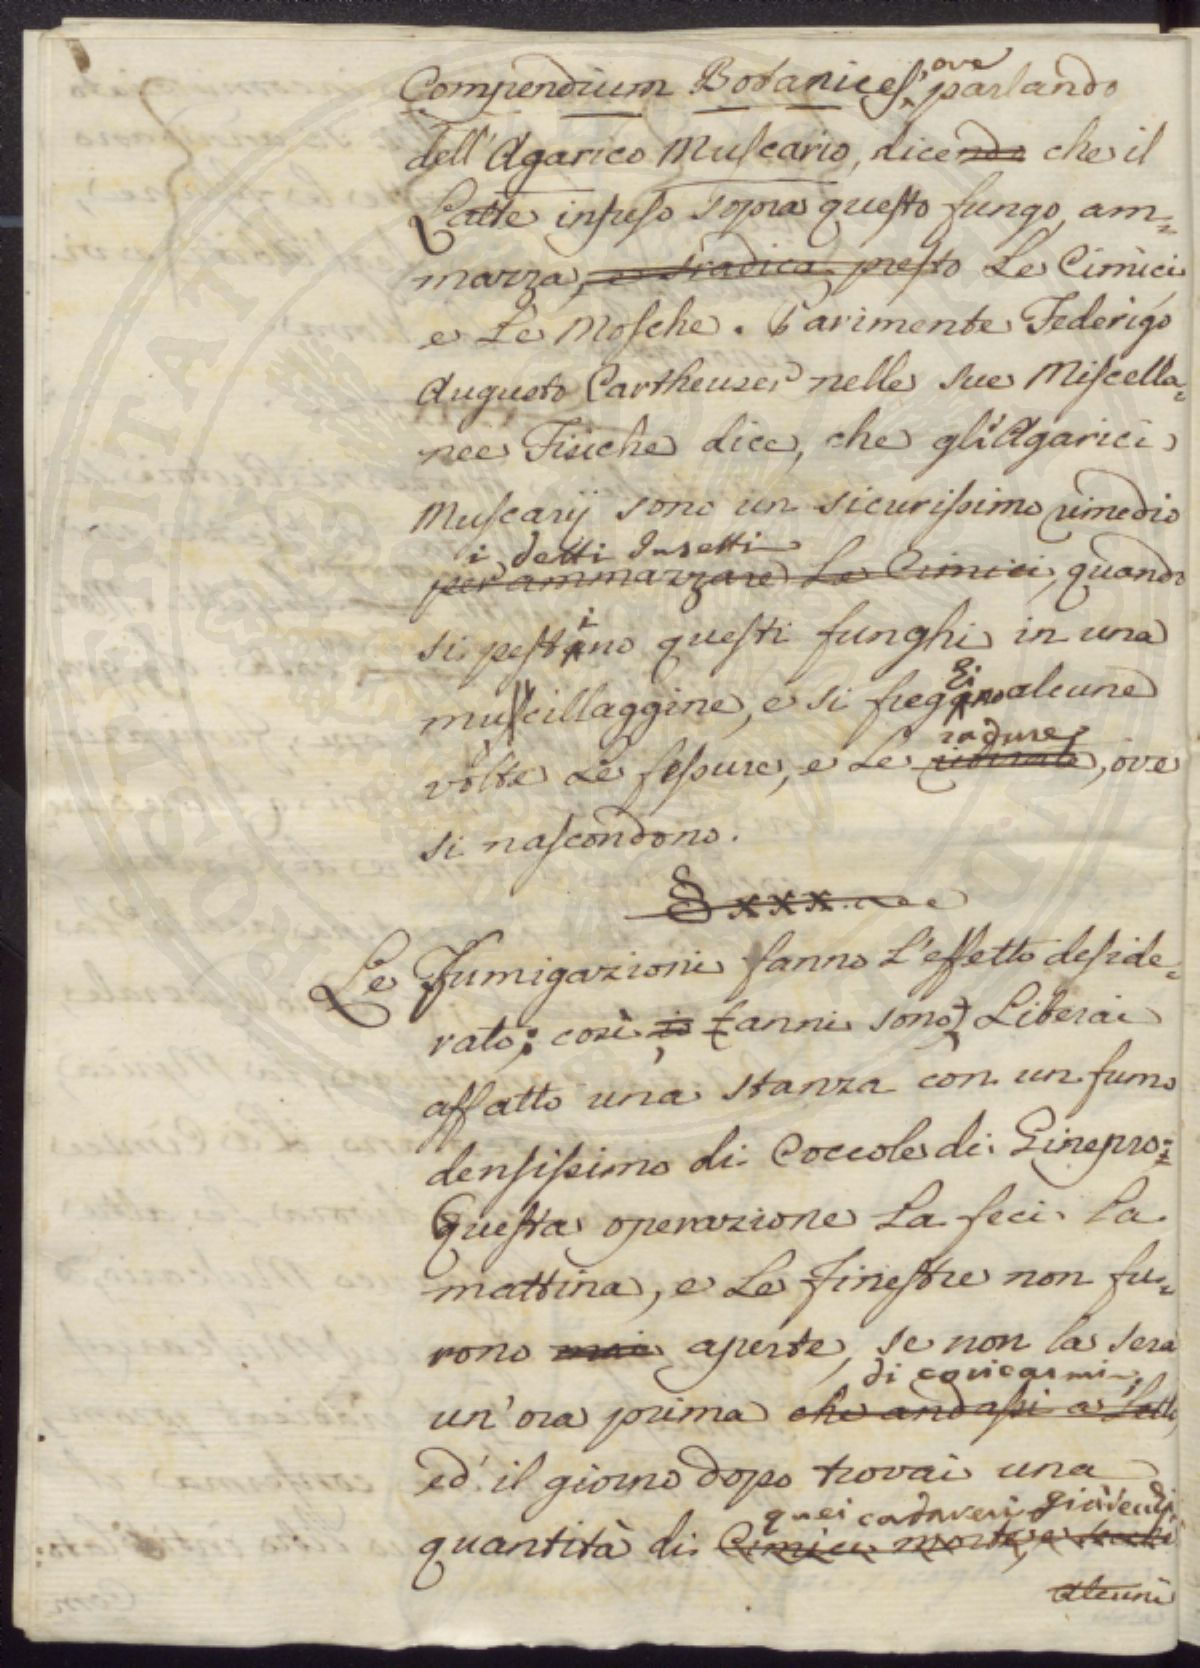 ove
Compendium Botanices, parlando
dell'Agarico Muscario, dicendo che il
Latte infuso sopra questo fungo, am=
mazza, e sradica presto Le Cimici
e Le Mosche. Parimente Federigo
Augusto Cartheuser nelle sue Miscella=
nee Fisiche dice, che gli Agarici
Muscarij sono un sicurissimo rimedio
i detti Insetti
per ammazzare Le Cimici, quando
i
si pestano questi funghi in una
gi
muscillaggine, e si freg no alcune
radure
volte Le fessure, e Le, ove
si nascondono.
§ xxx.
Le Fumigazioni fanno L'effetto deside=
rato; così io (anni sono) Liberai
affatto una stanza con un fumo
densissimo di Coccole di Ginepro:
Questa operazione La feci La
mattina, e Le finestre non fu=
rono mai aperte, se non la sera
di coricarmi,
un'ora prima che andassi a Letto,
ed il giorno dopo trovai una
quei cadaveri giacenti
quantità di Cimici morte, e secche
alcuni